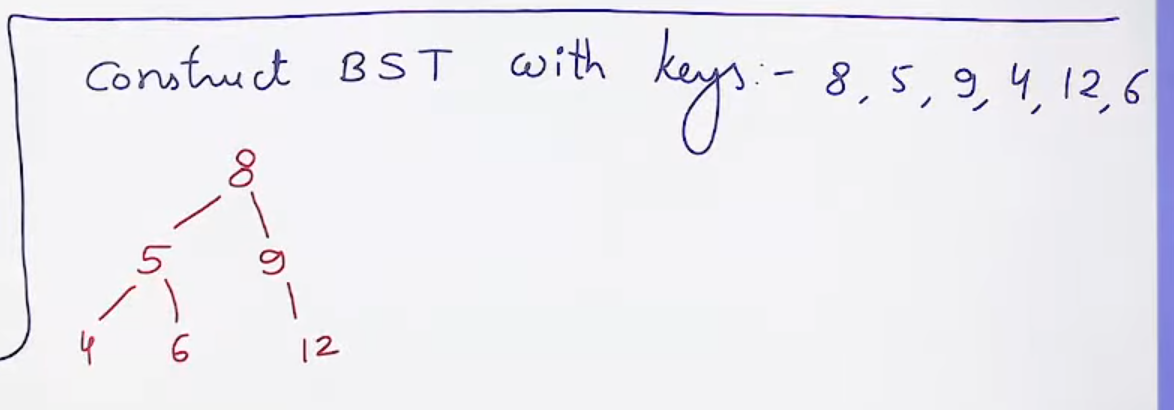 Construct BST with keys:- 8, 5, 9, 4, 12, 6
8
5 9
4 6 12